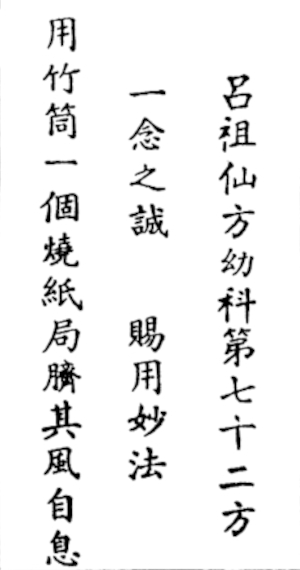 呂祖仙方幼科第七十二方
一念之誠　賜用妙法
用竹筒一個燒紙局臍其風自息